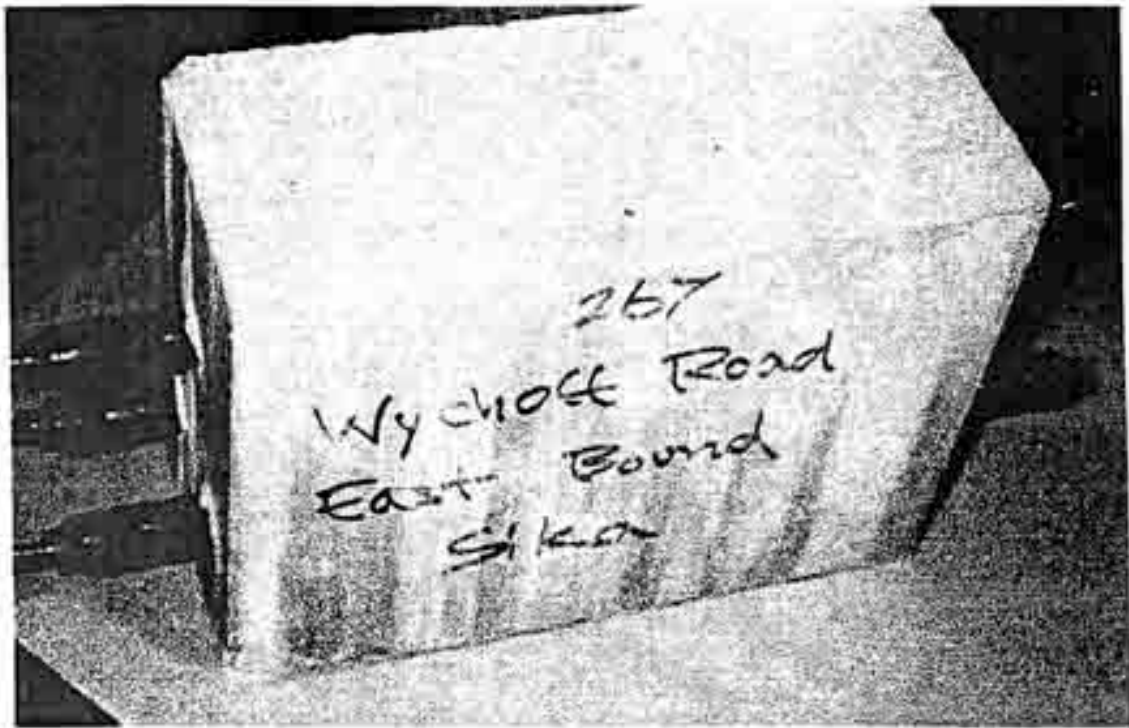 267
Wychoff Road
East Bound
Sika